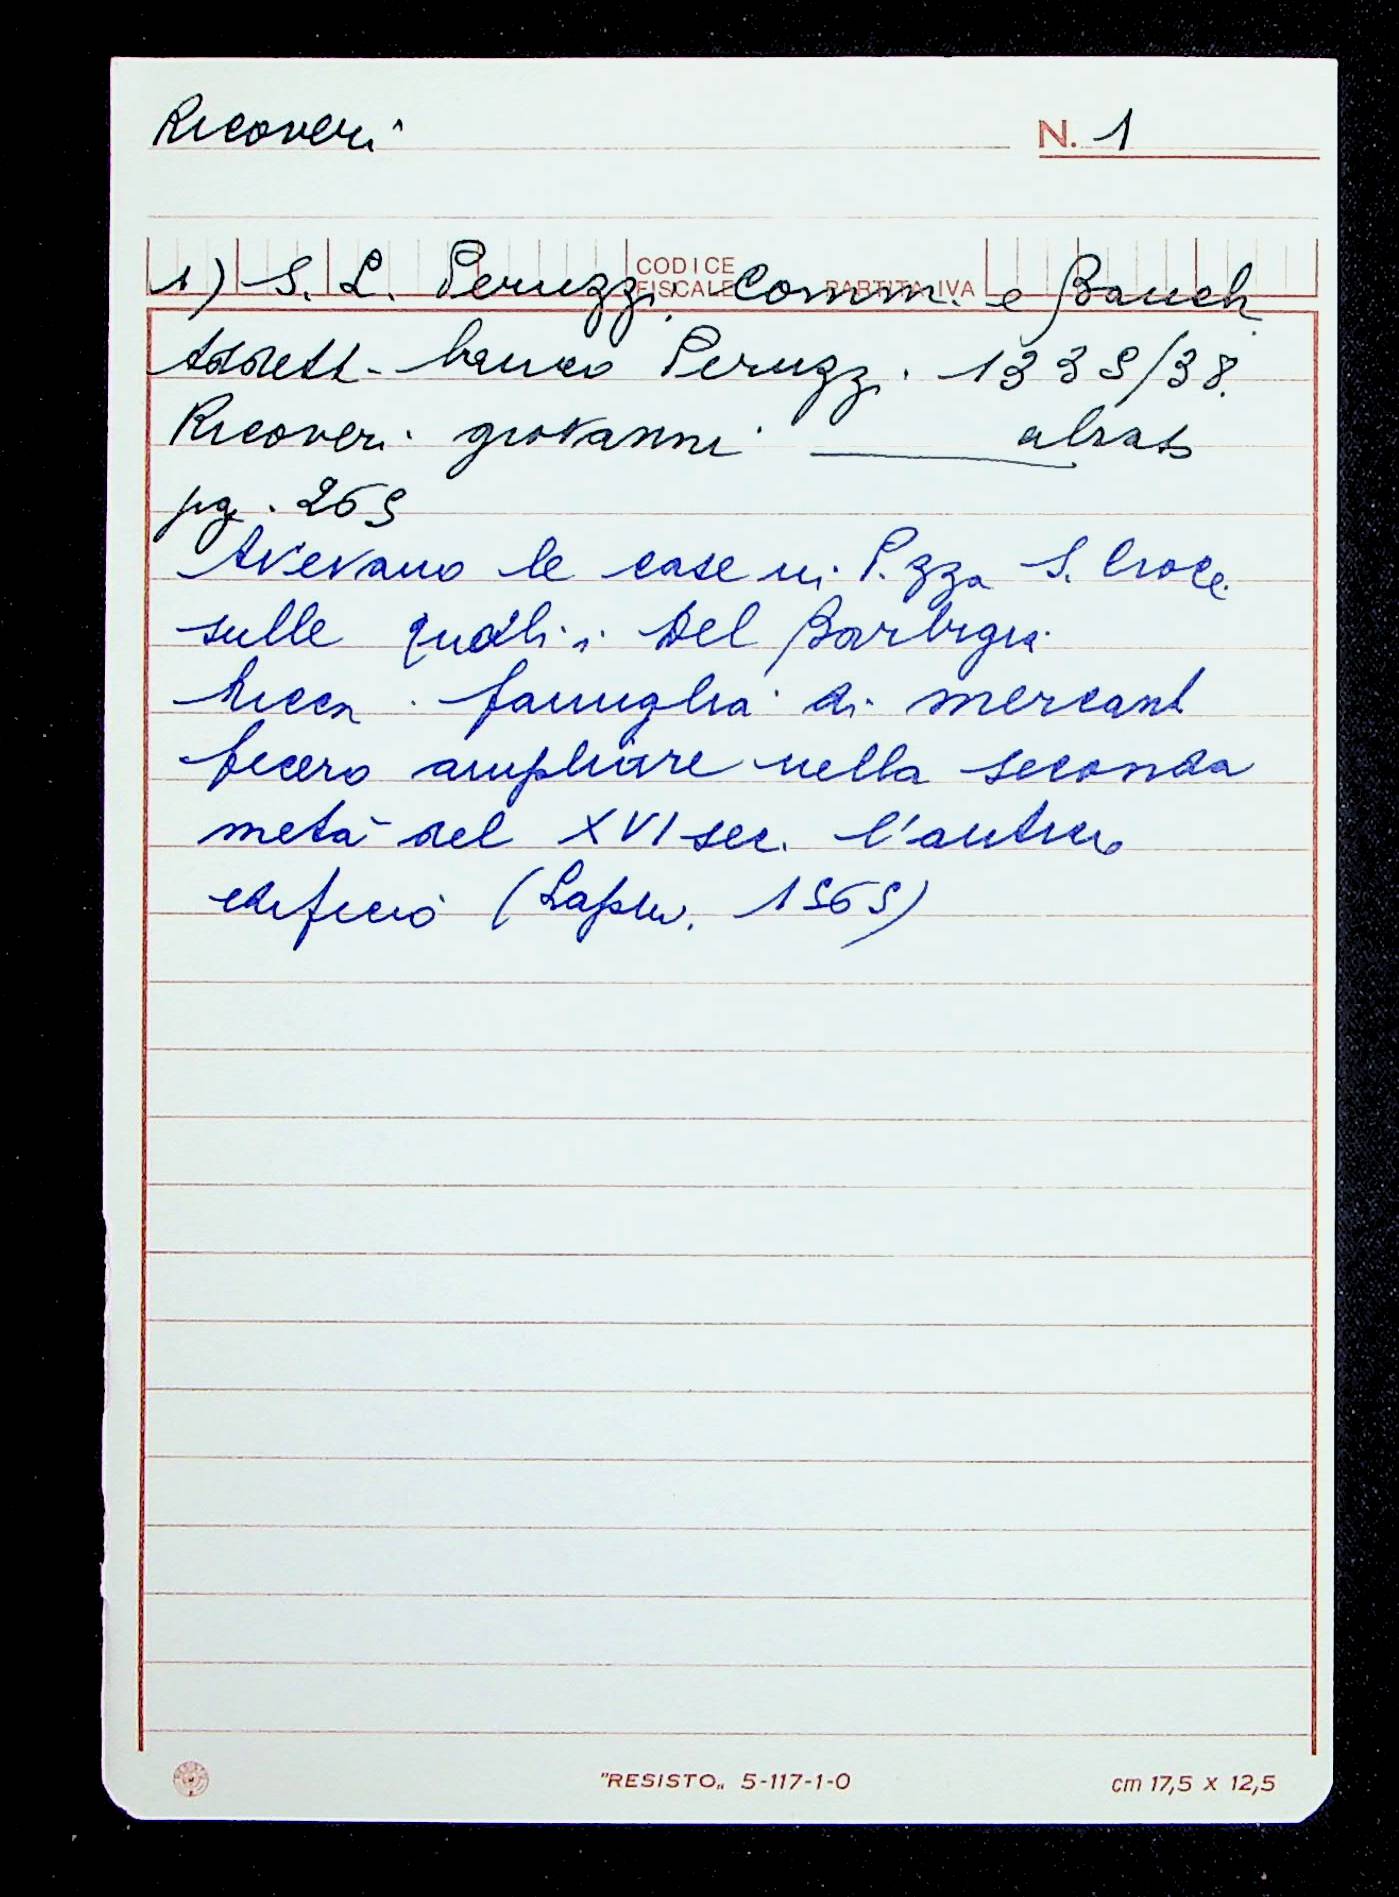 Ricoveri
N. 1
CODICE FISCALE PARTITA IVA
1) S. L. Peruzzi Comm. e Banch.
Addetti banco Peruzzi 1335/38.
Ricoveri giovanni
pg. 265
Avevano le case in P.zza S. Croce
sulle quali i Del Barbigia
ricca famiglia di mercanti
fecero ampliare nella seconda
metà del XVI sec. l'antico
edificio (Lapin. 1565)
"RESISTO„ 5-117-1-0
cm 17,5 x 12,5